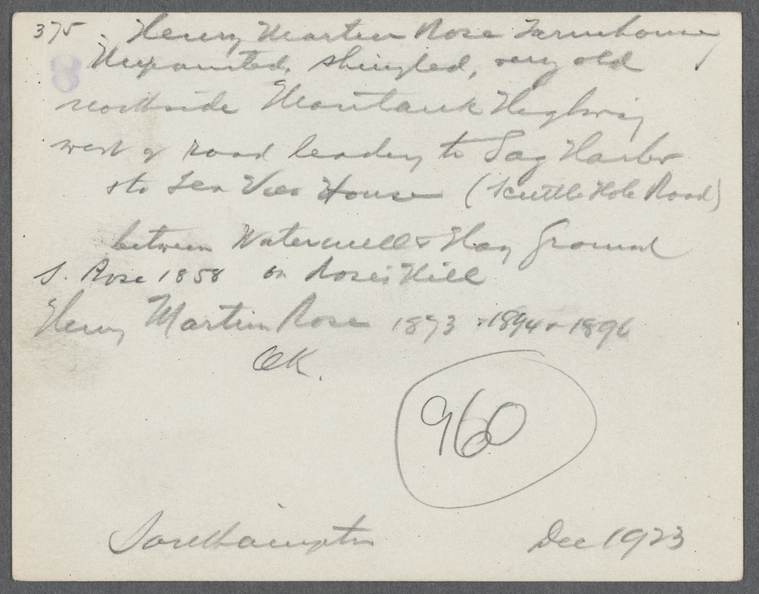 375. Henry Martin Rose Farmhouse
8 Unpainted, shingled, very old
northside Montauk Highway
west of road leading to Sag Harbor
sta Sea View House (Scuttle Hole Road)
between Watermill & Hay Ground
S. Rose 1858 on Rose's Hill
Henry Martin Rose 1873 + 1894 + 1896
OK.
960
Southampton Dec 1923